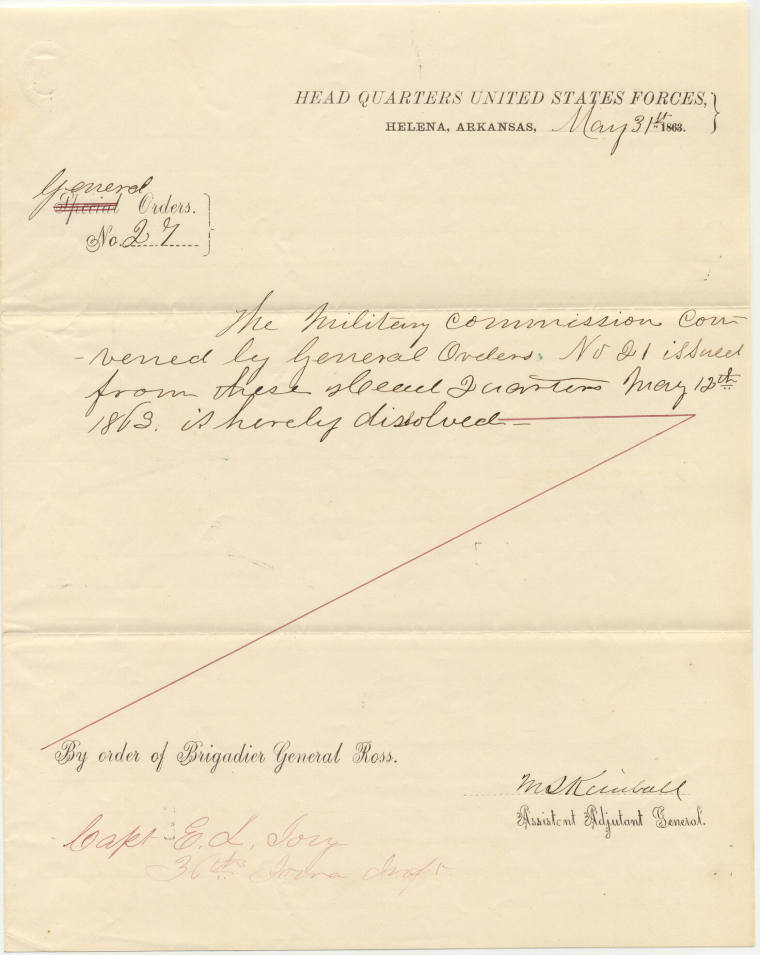 HEAD QUARTERS UNITED STATES FORCES,
HELENA, ARKANSAS, May 31st 1863.
General
Special Orders.
No. 27
The Military Commission Con-
-vened by General Orders No 21 issued
from these Head Quarters May 12th
1863. is hereby dissolved—
By order of Brigadier General Ross.
M S Kimball
Assistant Adjutant General.
Capt E. L. Joy
36th Iowa Inft